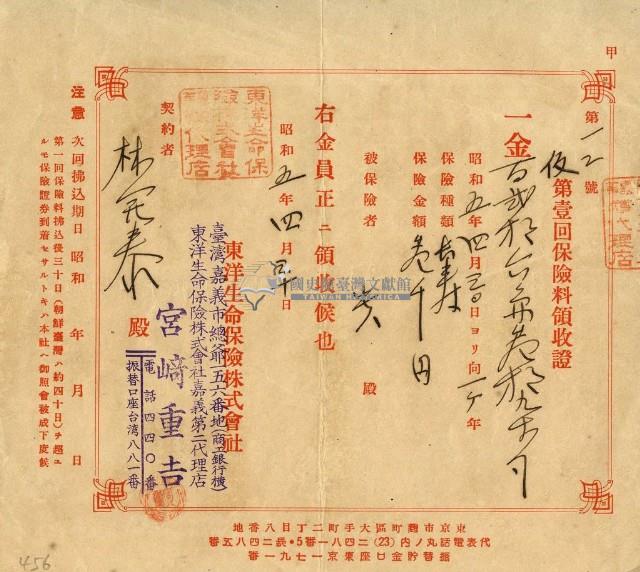 甲
第一二號
仮第壹回保險料領收證
一金百弐拾六円参拾九銭
昭和五年四月三〇日ヨリ向一ケ年
保險種類
保險金額 参千円
被保險者 殿
右金員正ニ領收候也
昭和五年四月三十日
東洋生命保險株式會社
臺湾嘉義市總爺一五六番地(商工銀行横)
東洋生命保險株式會社嘉義第二代理店
宮﨑重吉
電話四四〇番
振替口座台湾八八一番
東洋生命保險株式會社嘉義代理店
契約者
林 殿
注意 次回拂込期日昭和 年 月 日
第一回保險料拂込後三十日(朝鮮臺灣ハ約四十日)ヲ超ユ
ルモ保險證券到着セサルトキハ本社ヘ御照會被成下度候
東京市麴町區大手町二丁目八番地
代表電話丸ノ内(23)二四八一番5・長二四八五番
振替貯金口座東京一七九一番
國史館臺灣文獻館
456